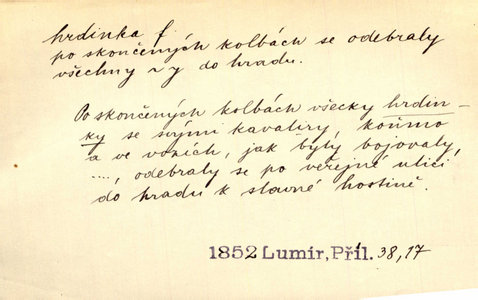 hrdinka f.
po skončených kolbách se odebraly
všechny ~y do hradu.
Po skončených kolbách všecky hrdin-
ky se svými kavalíry, koňmo
a ve vozích, jak byly bojovaly,
...., odebraly se po veřejné ulici
do hradu k slavné hostině.
1852 Lumír, Příl. 38, 17